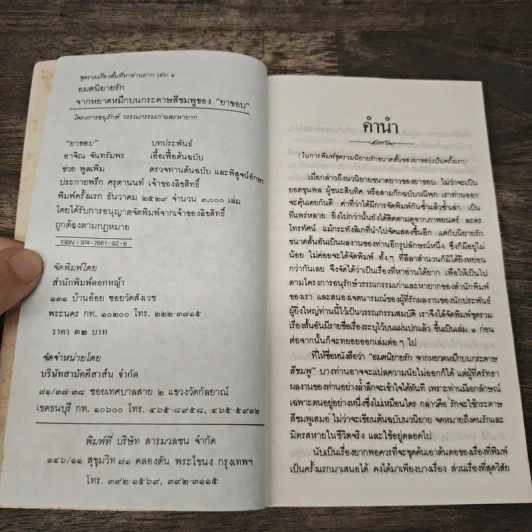 ชุดรวมเรื่องสั้นที่หาอ่านยาก เล่ม ๑
อมตนิยายรัก
จากหยาดหมึกบนกระดาษสีชมพูของ "ยาขอบ"
โครงการอนุรักษ์ วรรณกรรมเก่าและหายาก
"ยาขอบ" บทประพันธ์
อาจิณ จันทรัมพร เอื้อเฟื้อต้นฉบับ
ช่วย พูลเพิ่ม ตรวจทานต้นฉบับ และพิสูจน์อักษร
ประกายพรึก ศรุตานนท์ เจ้าของลิขสิทธิ์
พิมพ์ครั้งแรก ธันวาคม ๒๕๒๙ จำนวน ๓,๐๐๐ เล่ม
โดยได้รับการอนุญาตจัดพิมพ์จากเจ้าของลิขสิทธิ์
ถูกต้องตามกฎหมาย
ISBN : 974-7661-92-8
จัดพิมพ์โดย
สำนักพิมพ์ดอกหญ้า
๑๓๑ บ้านอ้อย ซอยวัดสังเวช
พระนคร กท. ๑๐๒๐๐ โทร. ๒๒๒-๓๘๑๕
ราคา ๓๒ บาท
จัดจำหน่ายโดย
บริษัทสามัคคีสาส์น จำกัด
๘๑/๓๗-๓๘ ซอยเทศบาลสาย ๒ แขวงวัดกัลยาณ์
เขตธนบุรี กท. ๑๐๖๐๐ โทร. ๔๖๕-๘๙๕๘, ๔๖๕-๕๙๓๒
พิมพ์ที่ บริษัท สารมวลชน จำกัด
๑๔๖/๑๑ สุขุมวิท ๗๑ คลองตัน พระโขนง กรุงเทพฯ
โทร. ๓๙๒-๑๕๖๙, ๓๙๒-๓๑๑๕
คำนำ
(ในการพิมพ์ชุดรวมนิยายรักขนาดสั้นของยาขอบเป็นครั้งแรก)
เมื่อกล่าวถึงนวนิยายขนาดยาวของยาขอบ ไม่ว่าจะเป็น
ยอดขุนพล ผู้ชนะสิบทิศ หรือสามก๊กฉบับวณิพก เราท่านออก
จะคุ้นเคยกันดี คำที่ว่าได้มีการจัดพิมพ์กันซ้ำแล้วซ้ำเล่า เป็น
ที่แพร่หลาย ยิ่งไปกว่านั้นยังได้ติดตามดูจากภาพยนตร์ ละคร
โทรทัศน์ แม้กระทั่งลิเกที่นำไปจัดแสดงขึ้นอีก แต่กับนิยายรัก
ขนาดสั้นอันเป็นผลงานของท่านอีกรูปลักษณ์หนึ่ง ซึ่งก็มีอยู่ไม่
น้อย ไม่ค่อยจะได้จัดพิมพ์ ทั้งๆ ที่ลีลาสำนวนก็มิได้ยิ่งหย่อน
กว่ากันเลย จึงจัดได้ว่าเป็นเรื่องที่หาอ่านได้ยาก เพื่อให้เป็นไป
ตามโครงการอนุรักษ์วรรณกรรมเก่าและหายากของสำนักพิมพ์
ของเรา และสนองเจตนารมณ์ของผู้ที่รักผลงานของนักประพันธ์
ผู้ยิ่งใหญ่ท่านนี้ไว้เป็นวรรณกรรมสมบัติ เราจึงได้จัดพิมพ์ชุดรวม
เรื่องสั้นอันมีรายชื่อเรื่องระบุไว้บนแผ่นปกแล้ว ขึ้นเป็นเล่ม ๑ ก่อน
ต่อจากนั้นก็จะทยอยออกเล่มต่อๆ ไป
ที่ให้ชื่อหนังสือว่า "อมตนิยายรัก จากหยาดหมึกบนกระดาษ
สีชมพู" บางท่านอาจจะแปลความนัยไม่ออกก็ได้ แต่ผู้ที่ศรัทธา
ผลงานของท่านอย่างล้ำลึกจะเข้าใจได้ทันที เพราะท่านมีเอกลักษณ์
เฉพาะตนอยู่อย่างหนึ่งซึ่งไม่เหมือนใคร กล่าวคือ รักจะใช้กระดาษ
สีชมพูเสมอ ไม่ว่าจะเขียนต้นฉบับนวนิยาย จดหมายถึงคนรักและ
มิตรสหายในชีวิตจริง และใช้อยู่ตลอดไป
นับเป็นเรื่องยากพอควรที่จะขุดค้นเอาต้นตอของเรื่องที่พิมพ์
เป็นครั้งแรกมาเสนอได้ คงได้มาเพียงบางเรื่อง ส่วนเรื่องที่สุดวิสัย